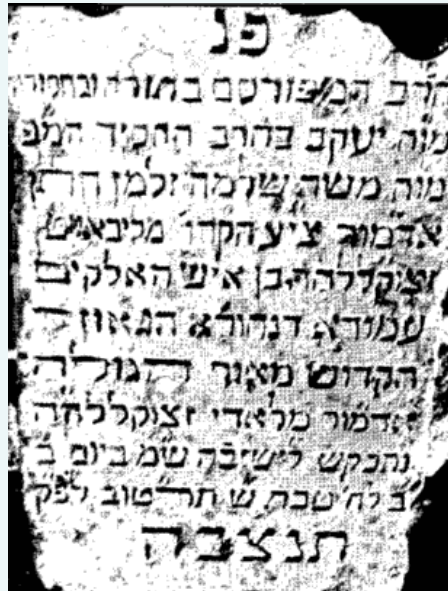 פנ
הרב המפורסם בתורה ובחסידות
מוה יעקב בהרב החסיד המפ
מוה משה שרמה זלמן
אדמור ציע הקדו מליבאוויט
זצוקללהה בן איש האלקים
עמודא דנהורא הגאון
הקדוש מאור הגולה
אדמור מלאדי זצוקללחה
נתבקש לישיבה שמ ביום ב
לח טבת ש תר טוב לפק
תנצבה